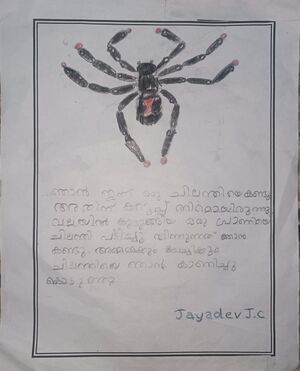 ഞാൻ ഇന്ന് ഒരു ചിലന്തിയെ കണ്ടു
അതിന് കറുപ്പ് നിറമായിരുന്നു
വലയിൽ ഒരു പ്രാണിയെ
ചിലന്തി പിടിച്ചു തിന്നുന്നത് ഞാൻ
കണ്ടു. അമ്മക്കും
ചിലന്തിയെ ഞാൻ കാണിച്ചു
കൊടുത്തു
Jayadev J.C